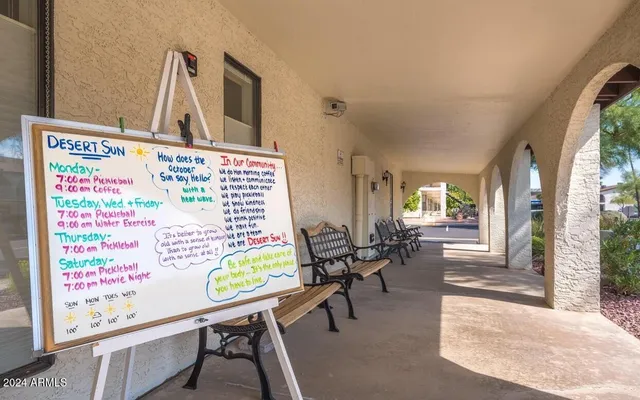 DESERT SUN
Monday-
7:00 am Pickleball
9:00 am Coffee
Tuesday, Wed, + Friday-
7:00 am Pickleball
9:00 am Water Exercise
Thursday-
7:00 am Pickleball
Saturday-
7:00 am Pickleball
7:00 pm Movie Night
SUN MON TUES WED
100° 100° 100° 100°
How does the
October
Sun say Hello?
with a
heat wave.
It's better to grow
old with a sense of humor
than to grow old
with no sense at all!!
In Our Community...
We do Mon morning coffee
We listen + communicate
We respect each other
We play pickleball
We show kindness
We do friendship
We think positive
We have fun
We are a team
We are DESERT SUN!!
Be safe and take care of
your body - It's the only place
you have to live...
2024 ARMLS